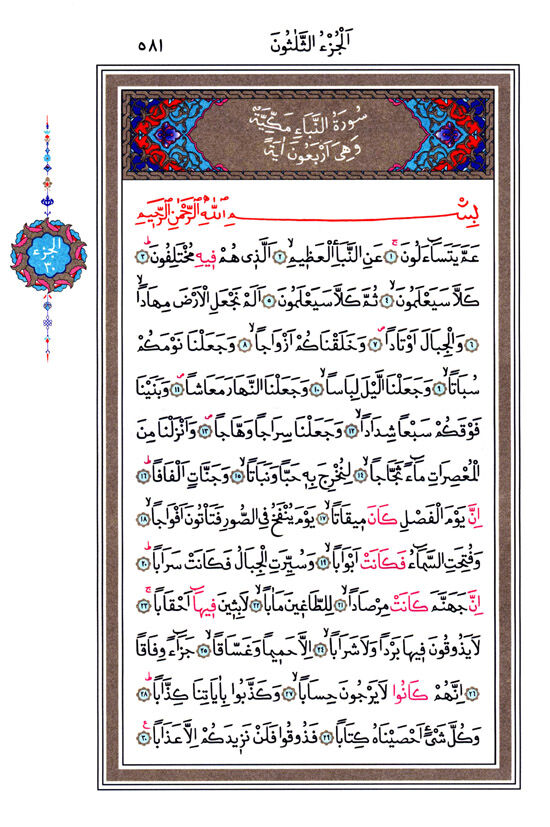 اَلْجُزْءُ الثَّلٰثُونَ
٥٨١
سُورَةُ النَّبَاءِ مَكِّيَّةٌ
وَهِيَ اَرْبَعُونَ اٰيَةً
بِسْمِ اللّٰهِ الرَّحْمٰنِ الرَّحِيمِ
عَمَّ يَتَسَٓاءَلُونَۚ ﴿١﴾ عَنِ النَّبَأِ الْعَظِيمِۙ ﴿٢﴾ اَلَّذِي هُمْ فِيهِ مُخْتَلِفُونَۜ ﴿٣﴾
كَلَّا سَيَعْلَمُونَۙ ﴿٤﴾ ثُمَّ كَلَّا سَيَعْلَمُونَ ﴿٥﴾ اَلَمْ نَجْعَلِ الْاَرْضَ مِهَادًاۙ
﴿٦﴾ وَالْجِبَالَ اَوْتَادًاۖ ﴿٧﴾ وَخَلَقْنَاكُمْ اَزْوَاجًاۙ ﴿٨﴾ وَجَعَلْنَا نَوْمَكُمْ
سُبَاتًاۙ ﴿٩﴾ وَجَعَلْنَا الَّيْلَ لِبَاسًاۙ ﴿١٠﴾ وَجَعَلْنَا النَّهَارَ مَعَاشًاۖ ﴿١١﴾ وَبَنَيْنَا
فَوْقَكُمْ سَبْعًا شِدَادًاۙ ﴿١٢﴾ وَجَعَلْنَا سِرَاجًا وَهَّاجًاۖ ﴿١٣﴾ وَاَنْزَلْنَا مِنَ
الْمُعْصِرَاتِ مَٓاءً ثَجَّاجًاۙ ﴿١٤﴾ لِنُخْرِجَ بِهِ حَبًّا وَنَبَاتًاۙ ﴿١٥﴾ وَجَنَّاتٍ اَلْفَافًاۜ ﴿١٦﴾
اِنَّ يَوْمَ الْفَصْلِ كَانَ مِيقَاتًاۙ ﴿١٧﴾ يَوْمَ يُنْفَخُ فِي الصُّورِ فَتَأْتُونَ اَفْوَاجًاۙ ﴿١٨﴾
وَفُتِحَتِ السَّمَٓاءُ فَكَانَتْ اَبْوَابًاۙ ﴿١٩﴾ وَسُيِّرَتِ الْجِبَالُ فَكَانَتْ سَرَابًاۜ ﴿٢٠﴾
اِنَّ جَهَنَّمَ كَانَتْ مِرْصَادًاۙ ﴿٢١﴾ لِلطَّاغِينَ مَاٰبًاۙ ﴿٢٢﴾ لَابِثِينَ فِيهَٓا اَحْقَابًاۚ ﴿٢٣﴾
لَا يَذُوقُونَ فِيهَا بَرْدًا وَلَا شَرَابًاۙ ﴿٢٤﴾ اِلَّا حَمِيمًا وَغَسَّاقًاۙ ﴿٢٥﴾ جَزَٓاءً وِفَاقًا
﴿٢٦﴾ اِنَّهُمْ كَانُوا لَا يَرْجُونَ حِسَابًاۙ ﴿٢٧﴾ وَكَذَّبُوا بِاٰيَاتِنَا كِذَّابًاۜ ﴿٢٨﴾
وَكُلَّ شَيْءٍ اَحْصَيْنَاهُ كِتَابًاۙ ﴿٢٩﴾ فَذُوقُوا فَلَنْ نَزِيدَكُمْ اِلَّا عَذَابًاۚ ﴿٣٠﴾
الجزء
٣٠